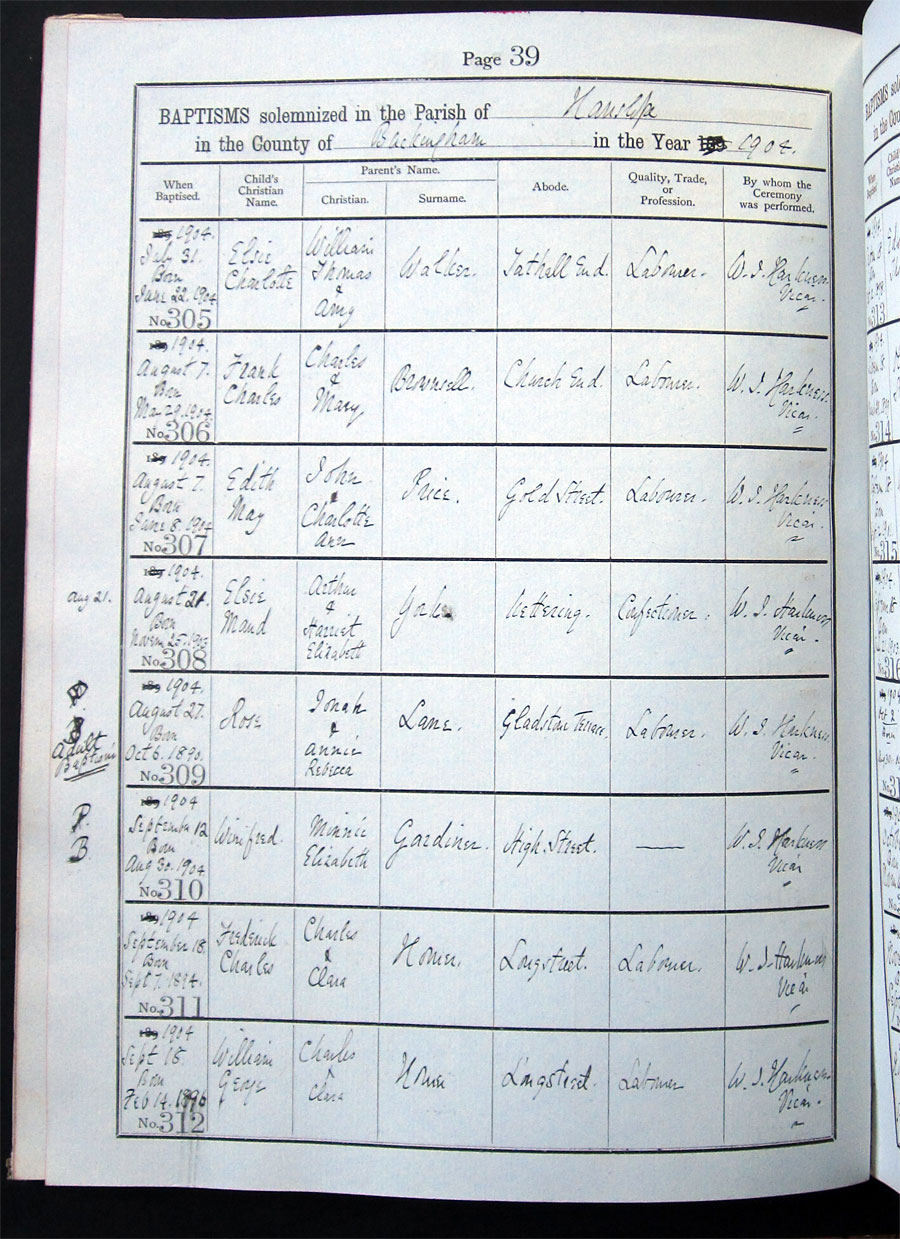 Page 39
BAPTISMS solemnized in the Parish of Hanslope
in the County of Buckingham in the Year 189 1904.
When Baptised.
Child's Christian Name.
Parent's Name.
Christian.
Surname.
Abode.
Quality, Trade, or Profession.
By whom the Ceremony was performed.
189 1904.
July 31.
Born
June 22. 1904
No. 305
Elsie
Charlotte
William
Thomas
&
Amy
Walker.
Tathall End.
Labourer.
W. J. Harkness
Vicar.
189 1904.
August 7.
Born
Mar 29. 1904
No. 306
Frank
Charles
Charles
&
Mary
Brownsell.
Church End.
Labourer.
W. J. Harkness
Vicar.
189 1904.
August 7.
Born
June 8. 1904
No. 307
Edith
May
John
&
Charlotte
Ann
Price.
Gold Street.
Labourer.
W. J. Harkness
Vicar.
Aug 21.
189 1904.
August 21.
Born
Novem 25. 1903
No. 308
Elsie
Maud
Arthur
&
Harriet
Elizabeth
York
Kettering.
Confectioner.
W. J. Harkness
Vicar.
P.
B
Adult
Baptism
189 1904.
August 27.
Born
Oct 6. 1890.
No. 309
Rose
Jonah
&
Annie
Rebecca
Lane.
Gladstone Terrace.
Labourer.
W. J. Harkness
Vicar.
P.
B
189 1904
September 12
Born
Aug 30. 1904
No. 310
Winifred.
Minnie
Elizabeth
Gardiner.
High Street.
W. J. Harkness
Vicar
189 1904
September 18.
Born
Sept 7. 1894.
No. 311
Frederick
Charles
Charles
&
Clara
Homer.
Longstreet.
Labourer.
W. J. Harkness
Vicar
189 1904
Sept 18.
Born
Feb 14. 1896
No. 312
William
George
Charles
&
Clara
Homer
Longstreet.
Labourer
W. J. Harkness
Vicar.